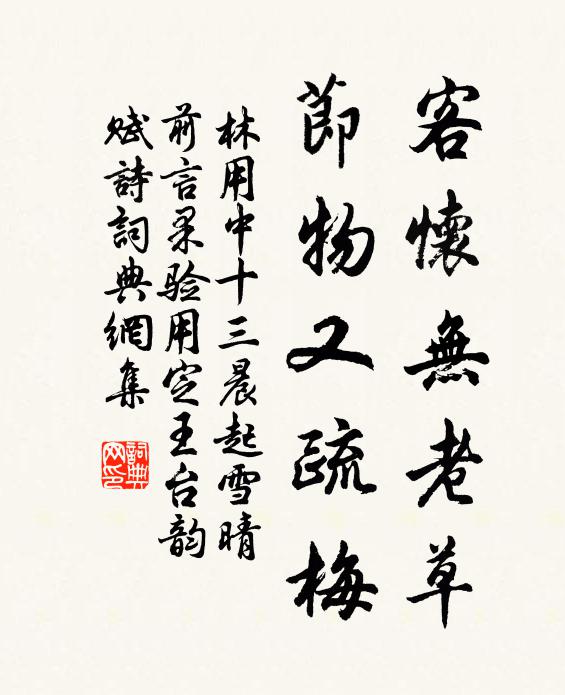 客懷無老草
節物又疏梅
林用中十三晨起雪晴
前言果验用定王台韵
賦詩詞典網集
詞典网印